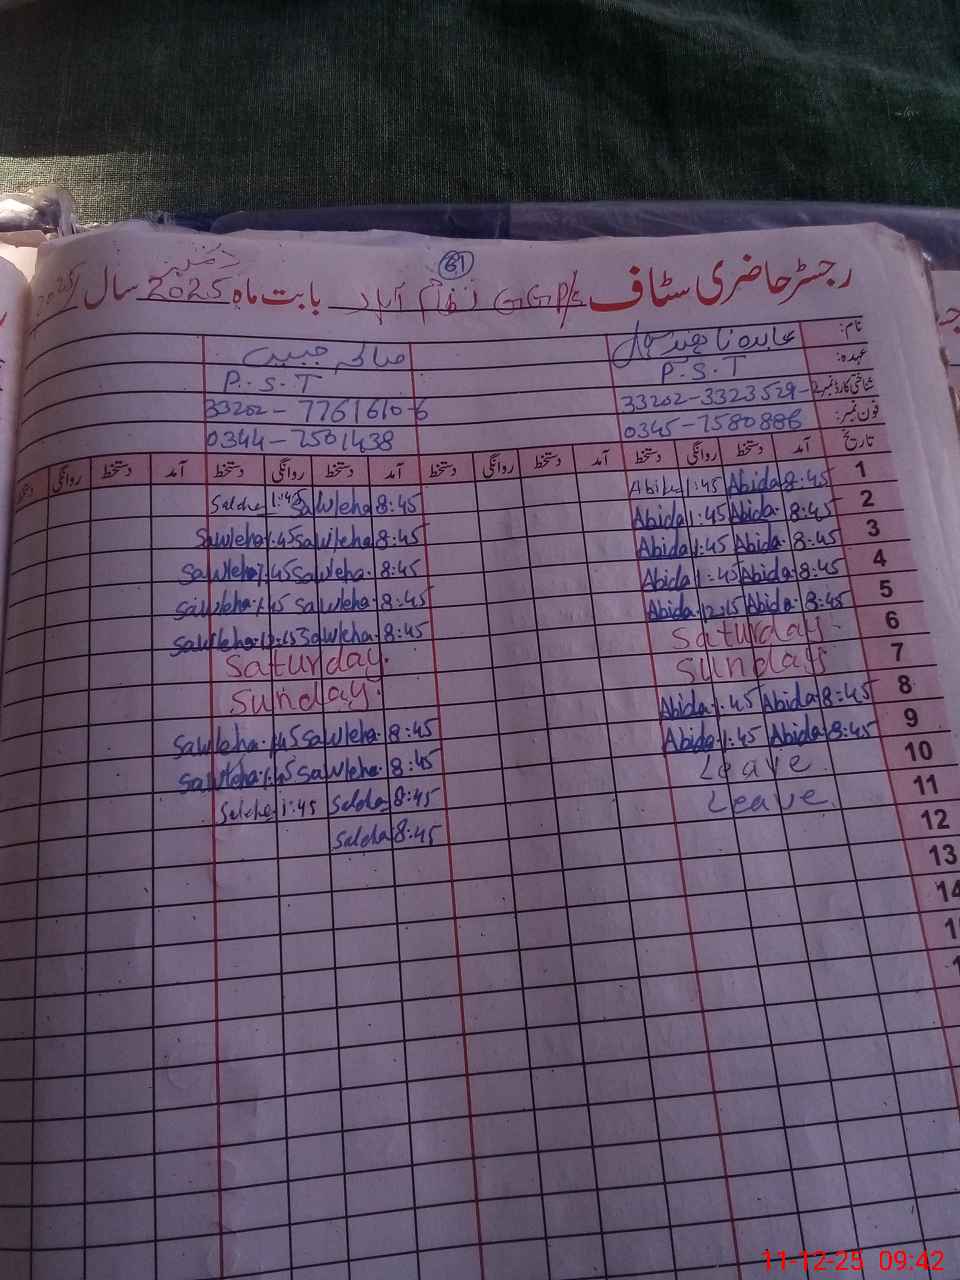 61
رجسٹر حاضری سٹاف GGP/S نظام آباد بابت ماہ دسمبر 2025 سال 2025
نام: عابدہ ناھید صالحہ
عہدہ: P.S.T P.S.T
شناختی کارڈ نمبر: 33202-3323529- 33202-7761610-6
فون نمبر: 0345-7580886 0344-7501438
تاریخ آمد دستخط روانگی دستخط آمد دستخط روانگی دستخط آمد دستخط روانگی دستخط آمد دستخط روانگی دستخط
1 8:45 Abida 1:45 8:45 Sawleha 1:45 Saleha
2 8:45 Abida 1:45 Abida 8:45 Sawleha 1:45 Sawleha
3 8:45 Abida 1:45 Abida 8:45 Sawleha 1:45 Sawleha
4 8:45 Abida 1:45 Abida 8:45 Sawleha 1:45 Sawleha
5 8:45 Abida 12:15 Abida 8:45 Sawleha 12:15 Sawleha
6 Saturday Saturday
7 Sunday Sunday
8 8:45 Abida 1:45 Abida 8:45 Sawleha 1:45 Sawleha
9 8:45 Abida 1:45 Abida 8:45 Sawleha 1:45 Sawleha
10 Leave 8:45 Saleha 1:45 Saleha
11 Leave 8:45 Saleha
12
13
14
11-12-25 09:42